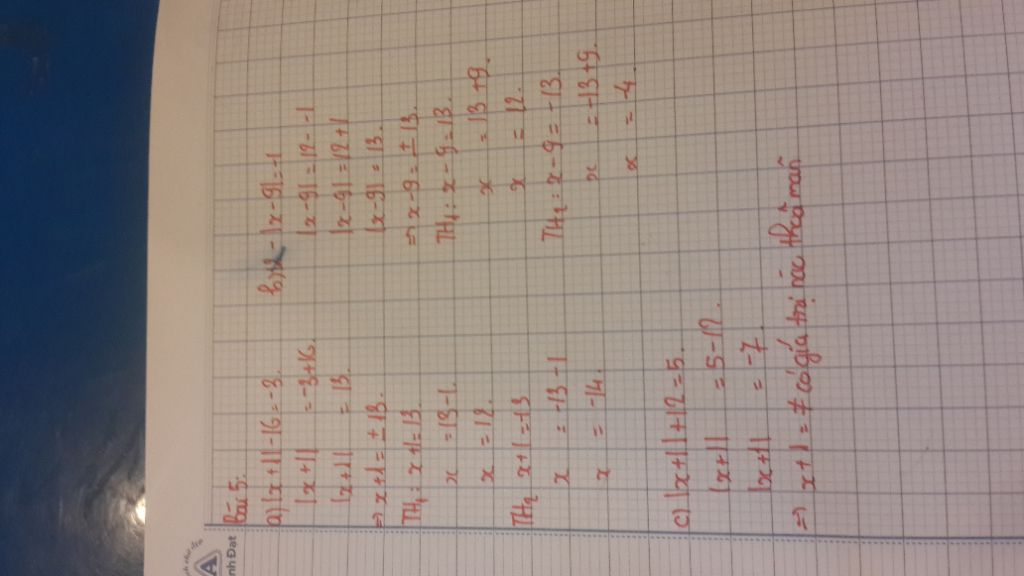 Bài 5:
a) |x+1|-16=-3.
|x+1| =-3+16.
|x+1| = 13.
=> x+1=±13.
TH1: x+1=13.
x =13-1.
x =12.
TH2 x+1=-13
x = -13-1
x = -14.
b) 12-|x-9|=-1
|x-9|=12--1
|x-9|=12+1
|x-9|=13.
=> x-9=±13.
TH1: x-9=13.
x =13+9.
x = 12.
TH2: x-9=-13.
x =-13+9.
x =-4.
c) |x+1|+12=5.
|x+1| =5-12.
|x+1| =-7.
=> x+1=≠ có giá trị nào thoả mãn
A
nh Đạt